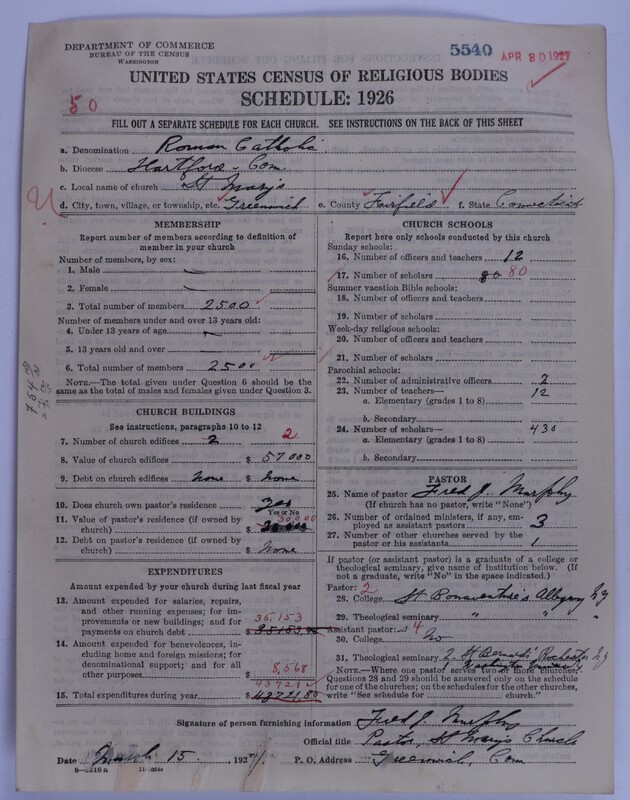 DEPARTMENT OF COMMERCE
BUREAU OF THE CENSUS
WASHINGTON
5540
APR 30 1927
UNITED STATES CENSUS OF RELIGIOUS BODIES
SCHEDULE: 1926
50
FILL OUT A SEPARATE SCHEDULE FOR EACH CHURCH. SEE INSTRUCTIONS ON THE BACK OF THIS SHEET
a. Denomination Roman Catholic
b. Diocese Hartford - Conn.
c. Local name of church St Mary's
d. City, town, village, or township, etc. Greenwich e. County Fairfield f. State Connecticut
MEMBERSHIP
Report number of members according to definition of
member in your church
Number of members, by sex:
1. Male
2. Female
3. Total number of members 2500
Number of members under and over 13 years old:
4. Under 13 years of age
5. 13 years old and over
6. Total number of members 2500
NOTE.—The total given under Question 6 should be
same as the total of males and females given under Question 3.
CHURCH BUILDINGS
See instructions, paragraphs 10 to 12
7. Number of church edifices 2 2
8. Value of church edifices $ 57000
9. Debt on church edifices None $ None
10. Does church own pastor's residence Yes
Yes or No
11. Value of pastor's residence (if owned by
church) $ 30,000
12. Debt on pastor's residence (if owned by
church) $ None
EXPENDITURES
Amount expended by your church during last fiscal year
13. Amount expended for salaries, repairs,
and other running expenses; for im-
provements or new buildings; and for
payments on church debt $ 35,153
14. Amount expended for benevolences, in-
cluding home and foreign missions; for
denominational support; and for all
other purposes $ 8,568
15. Total expenditures during year $ 43721.80
CHURCH SCHOOLS
Report here only schools conducted by this church
Sunday schools:
16. Number of officers and teachers 12
17. Number of scholars 80 80
Summer vacation Bible schools:
18. Number of officers and teachers
19. Number of scholars
Week-day religious schools:
20. Number of officers and teachers
21. Number of scholars
Parochial schools:
22. Number of administrative officers 2
23. Number of teachers— 12
a. Elementary (grades 1 to 8)
b. Secondary
24. Number of scholars— 430
a. Elementary (grades 1 to 8)
b. Secondary
PASTOR
25. Name of pastor Fred J. Murphy
(If church has no pastor, write "None")
26. Number of ordained ministers, if any, em-
ployed as assistant pastors 3
27. Number of other churches served by the
pastor or his assistants 1
If pastor (or assistant pastor) is a graduate of a college or
theological seminary, give name of institution below. (If
not a graduate, write "No" in the space indicated.)
Pastor: 2
28. College St Bonaventure's Allegany N.Y
29. Theological seminary " "
Assistant pastor: 4
30. College No
31. Theological seminary 2. St Bernard's Rochester N.Y
NOTE.—Where one pastor served two or more churches,
Questions 28 and 29 should be answered only on the schedule
for one of the churches; on the schedules for the other churches,
write "See schedule for church."
Signature of person furnishing information Fred J. Murphy
Official title Pastor, St Mary's Church
Date March 15, 1927. P. O. Address Greenwich, Conn